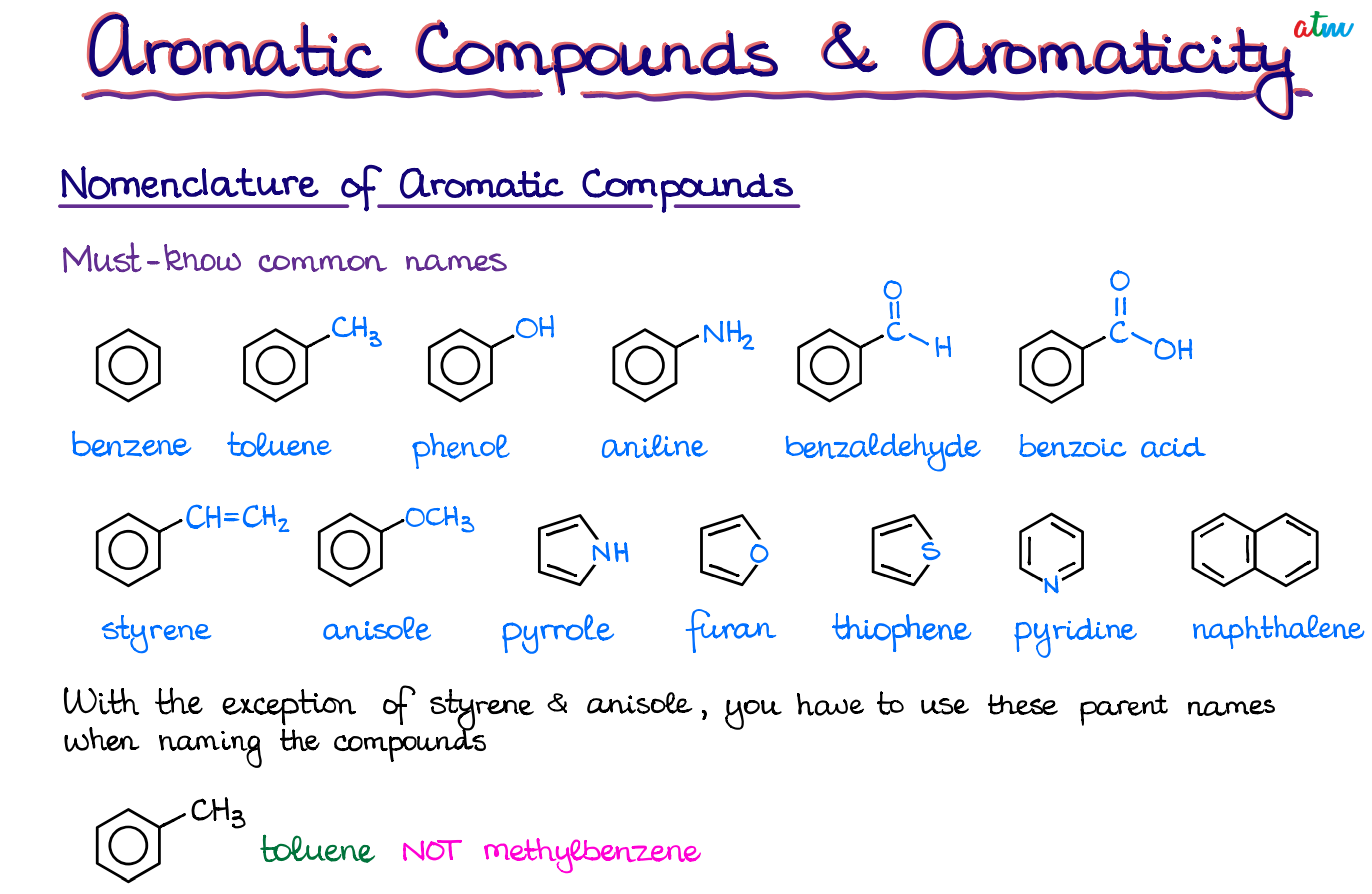 Aromatic Compounds & Aromaticity
atm
Nomenclature of Aromatic Compounds
Must-know common names
CH3 OH NH2 O C H O C OH
benzene toluene phenol aniline benzaldehyde benzoic acid
CH=CH2 OCH3 NH O S N
styrene anisole pyrrole furan thiophene pyridine naphthalene
With the exception of styrene & anisole, you have to use these parent names
when naming the compounds
CH3
toluene NOT methylbenzene